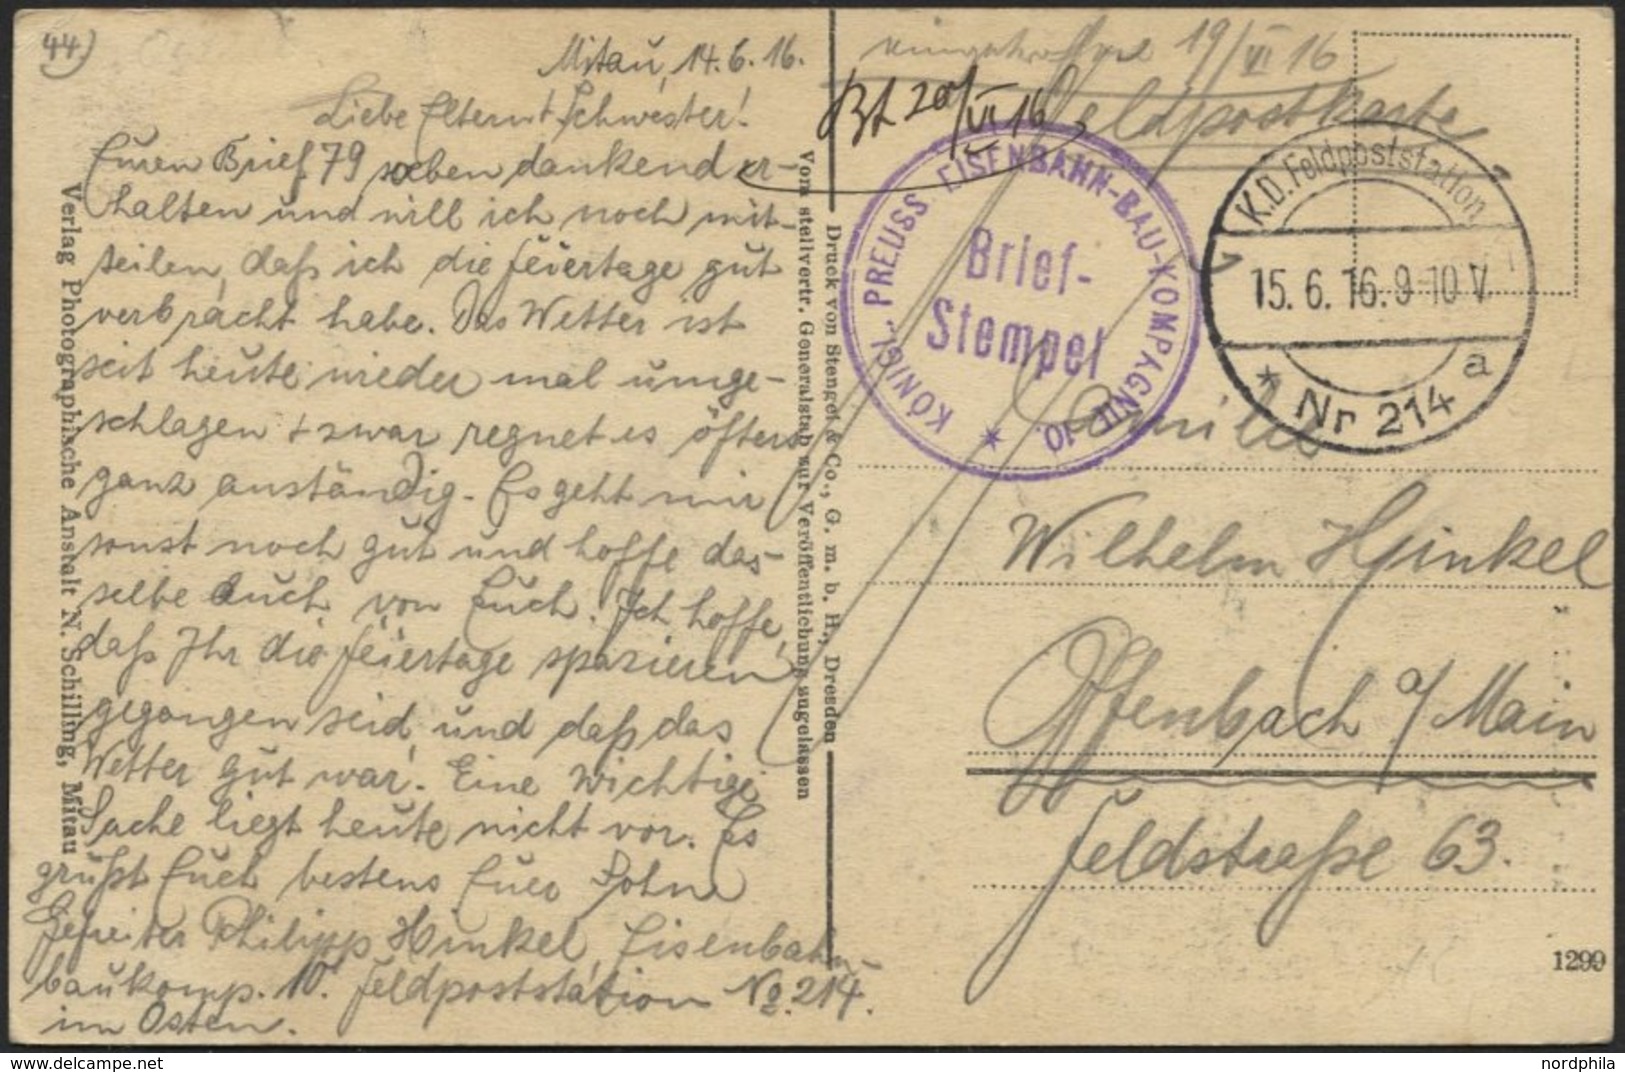 44)
Mitau, 14.6.16.
Liebe Eltern u. Schwester!
Euren Brief 79 soeben dankend er-
halten und will ich noch mit-
teilen, daß ich die Feiertage gut
verbracht habe. Das Wetter ist
seit heute wieder mal umge-
schlagen + zwar regnet es öfters
ganz anständig. Es geht mir
sonst noch gut und hoffe das-
selbe auch von Euch. Ich hoffe,
daß Ihr die Feiertage spazieren
gegangen seid, und daß das
Wetter gut war. Eine wichtige
Sache liegt heute nicht vor. Es
grüßt Euch bestens Euer Sohn
Gefreiter Philipp Hinkel, Eisenbahn-
baukomp. 10. Feldpoststation No. 214.
im Osten.
Verlag Photographische Anstalt N. Schilling, Mitau
Vom stellvertr. Generalstab zur Veröffentlichung zugelassen
Druck von Stengel & Co., G. m. b. H., Dresden
19/VI 16
20/VI 16
Feldpostkarte
KÖNIGL. PREUSS. EISENBAHN-BAU-KOMPAGNIE 10.
Brief-
Stempel
K.D. Feldpoststation
15.6.16. 9-10 V.
* Nr 214 a
Familie
Wilhelm Hinkel
Offenbach a/Main
Feldstraße 63.
1299
nordphila